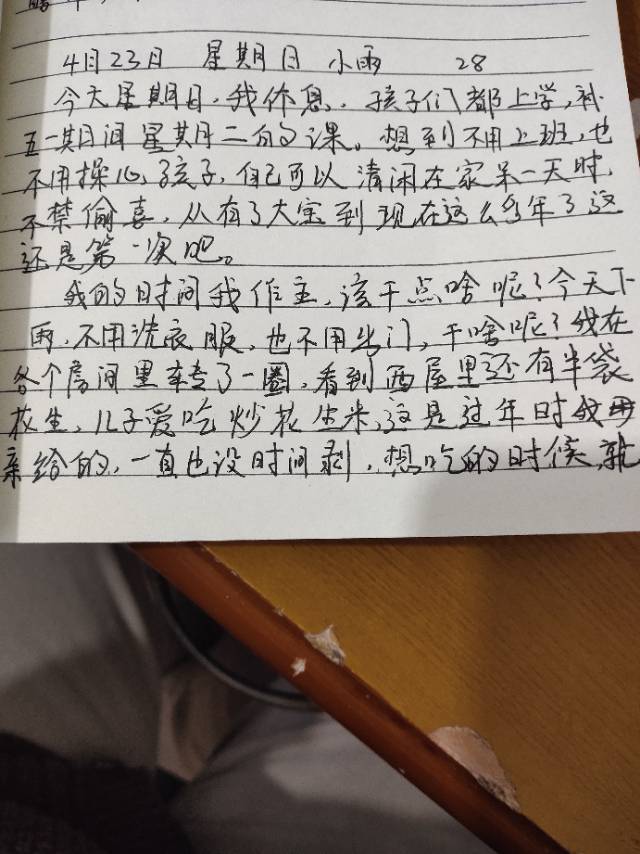 4月23日 星期日 小雨 28
今天星期日，我休息，孩子们都上学，补
五一期间星期二的课。想到不用上班，也
不用操心孩子，自己可以清闲在家呆一天时，
不禁偷喜，从有了大宝到现在这么多年了这
还是第一次吧。
我的时间我作主，该干点啥呢？今天下
雨，不用洗衣服，也不用出门，干啥呢？我在
各个房间里转了一圈，看到西屋里还有半袋
花生，儿子爱吃炒花生米，这是过年时我母
亲给的，一直也没时间剥，想吃的时候，就